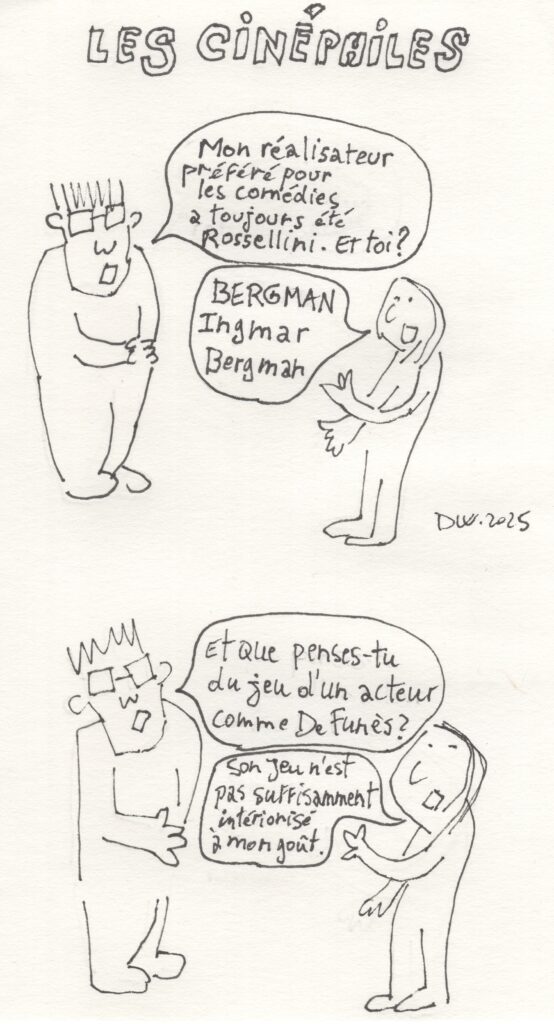 LES CINÉPHILES
Mon réalisateur
préféré pour
les comédies
a toujours été
Rossellini. Et toi?
BERGMAN
Ingmar
Bergman
DW.2025
Et que penses-tu
du jeu d'un acteur
comme De Funès?
Son jeu n'est
pas suffisamment
intériorisé
à mon goût.